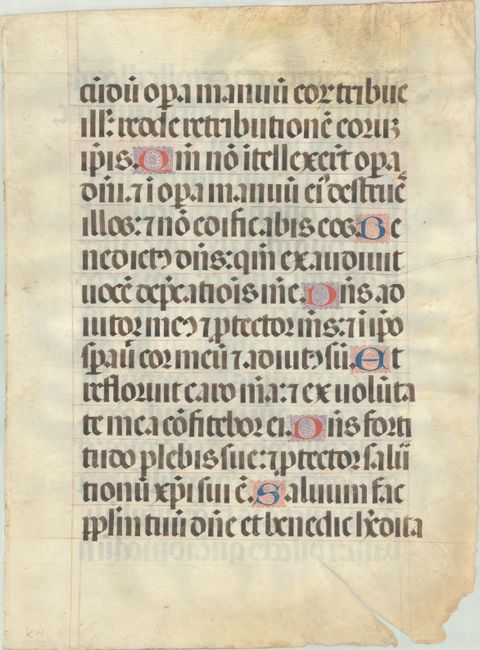 cūdū opa manuū eoꝝ tribue
ill': redde retributionē eoruꝫ
ip̄is. Qm̄ nō ītellexer̄t opa
dn̄i. ⁊ ī opa manuū ei' destrue
illos: ⁊ nō edificabis eos. Be
nedict⁹ dn̄s: qm̄ exaudiuit
uocē dep̄catiōis mē. Dn̄s ad
iutor me⁹ ⁊ ꝓtector m̄s: ⁊ ī ip̄o
sꝑauī cor meū ⁊ adiut⁹ sū. Et
refloruit caro m̄a: ⁊ ex uolūta
te mea cōfitebor ei. Dn̄s forti
tudo plebis sue: ⁊ ꝓtector salu
tionū xp̄i sui ē. Saluum fac
pp̄lm tuū dn̄e et benedic h̄edita
K14